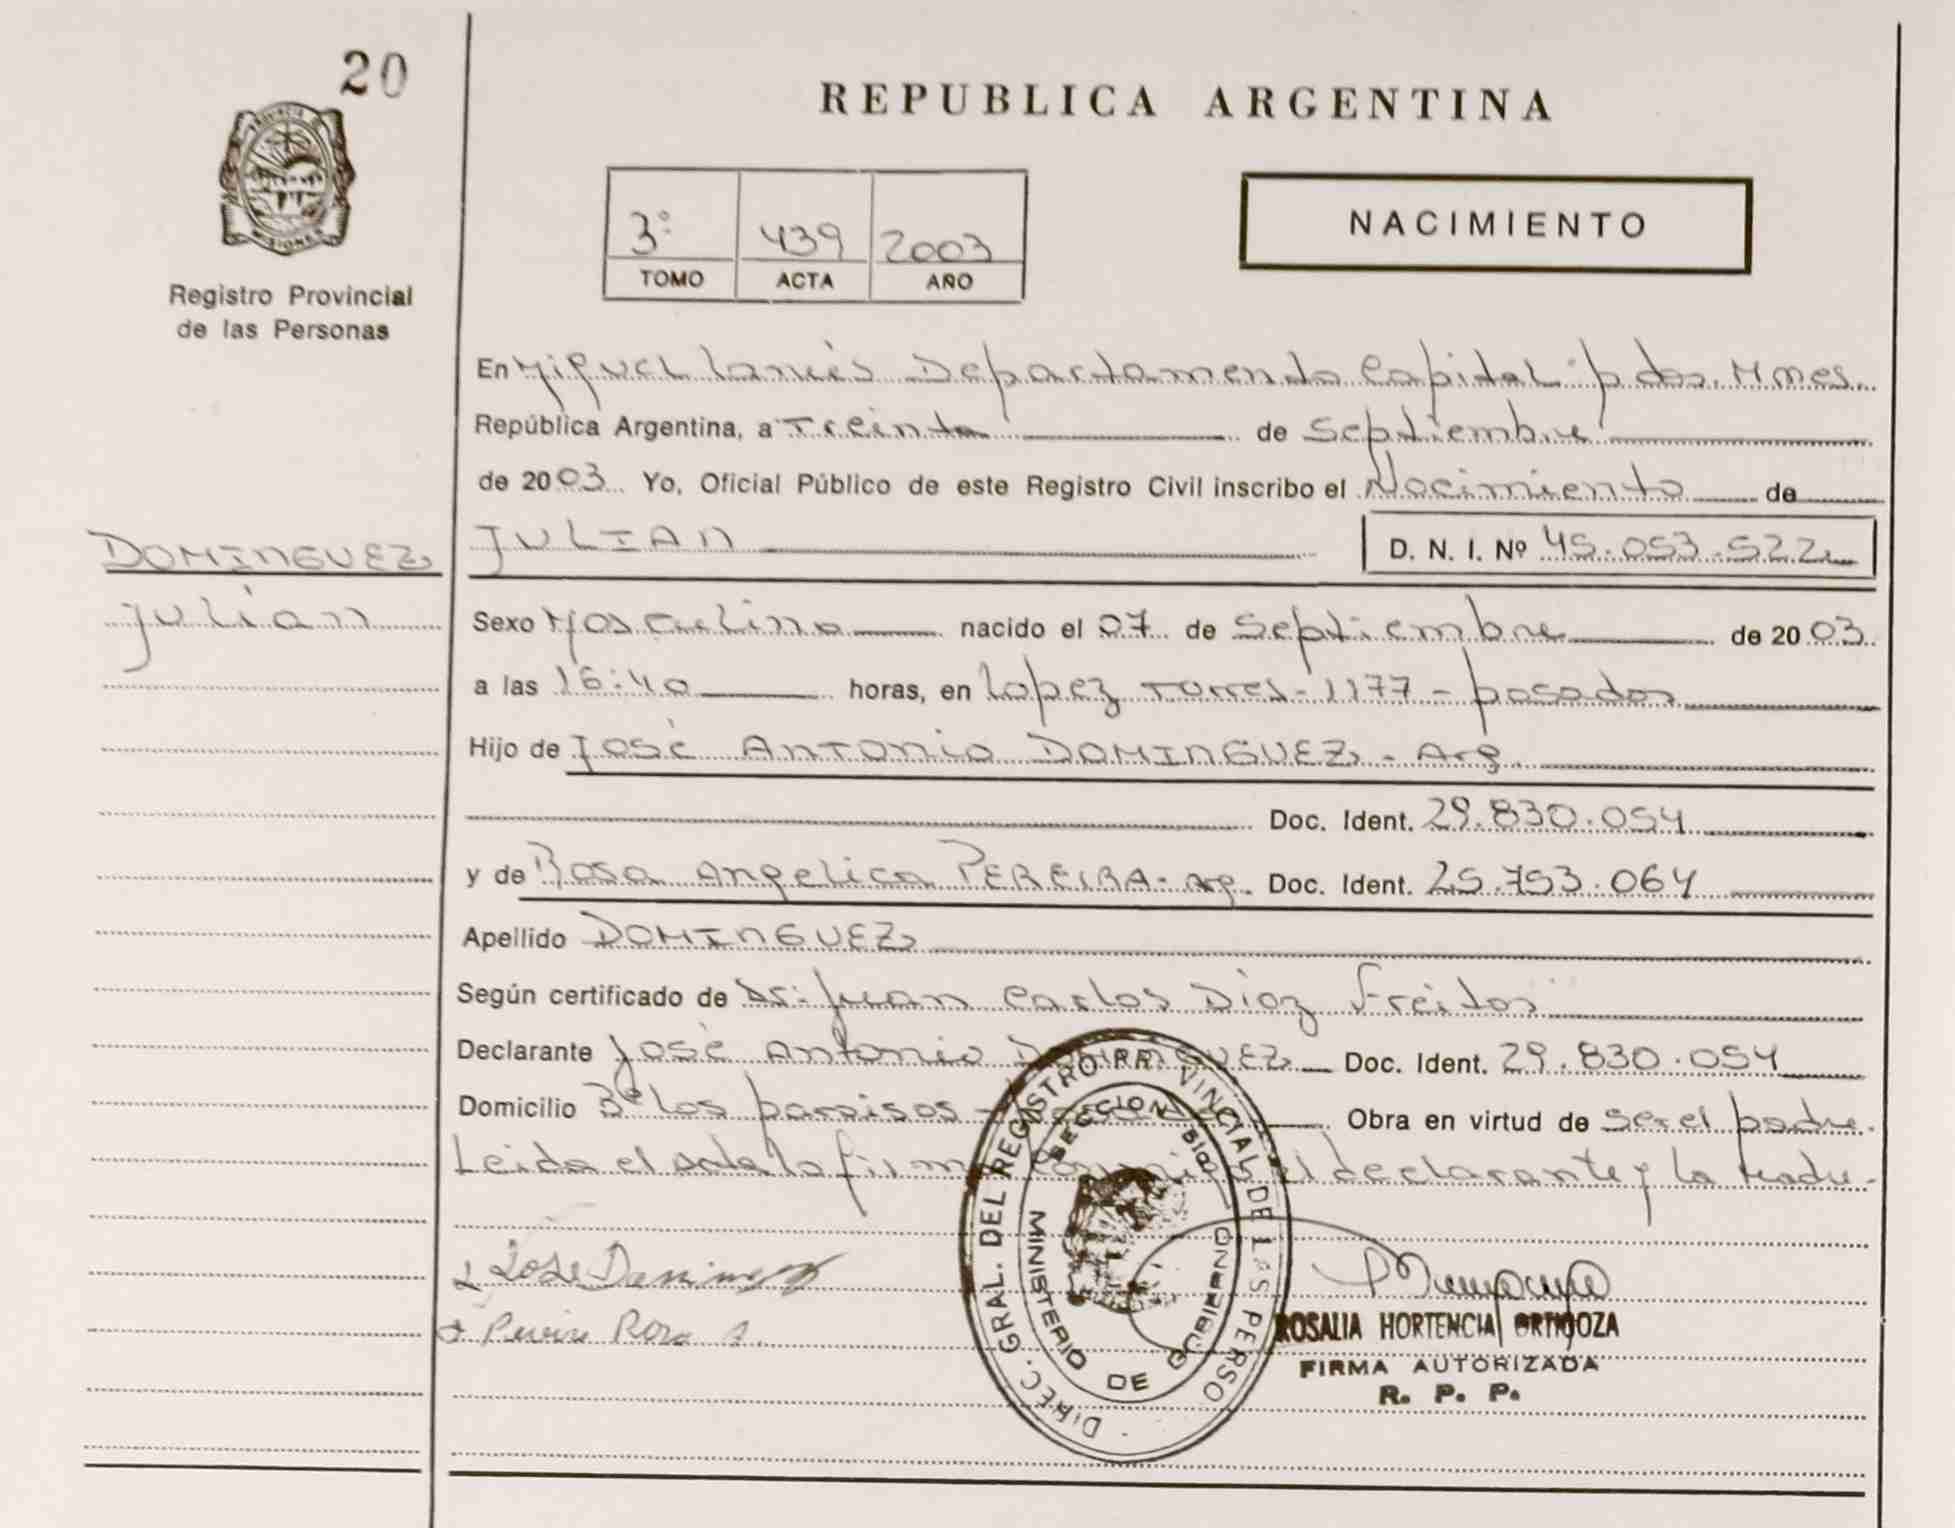 20
PROVINCIA DE
MISIONES
Registro Provincial
de las Personas
REPUBLICA ARGENTINA
3º 439 2003
TOMO ACTA AÑO
NACIMIENTO
En Miguel Lanús Departamento Capital Pdas. Mnes.
República Argentina, a Treinta de Septiembre
de 2003 Yo, Oficial Público de este Registro Civil inscribo el Nacimiento de
DOMINGUEZ
Julian
JULIAN D. N. I. Nº 45.053.522
Sexo Masculino nacido el 07 de Septiembre de 2003
a las 16:40 horas, en Lopez Torres - 1177 - posadas
Hijo de José Antonio DOMINGUEZ - Arg.
Doc. Ident. 29.830.054
y de Rosa Angelica PEREIRA - Arg. Doc. Ident. 25.753.064
Apellido DOMINGUEZ
Según certificado de Dr. Juan Carlos Diaz Freitas
Declarante José Antonio DOMINGUEZ Doc. Ident. 29.830.054
Domicilio Bº Los paraisos - Obra en virtud de ser el padre.
Leida el acta la firma el declarante y la Madre.
José Dominguez
Rosa A.
DIREC. GRAL. DEL REGISTRO PROVINCIAL DE LAS PERSO
MINISTERIO DE GOBIERNO
SECCION
ROSALIA HORTENCIA ORTIGOZA
FIRMA AUTORIZADA
R. P. P.